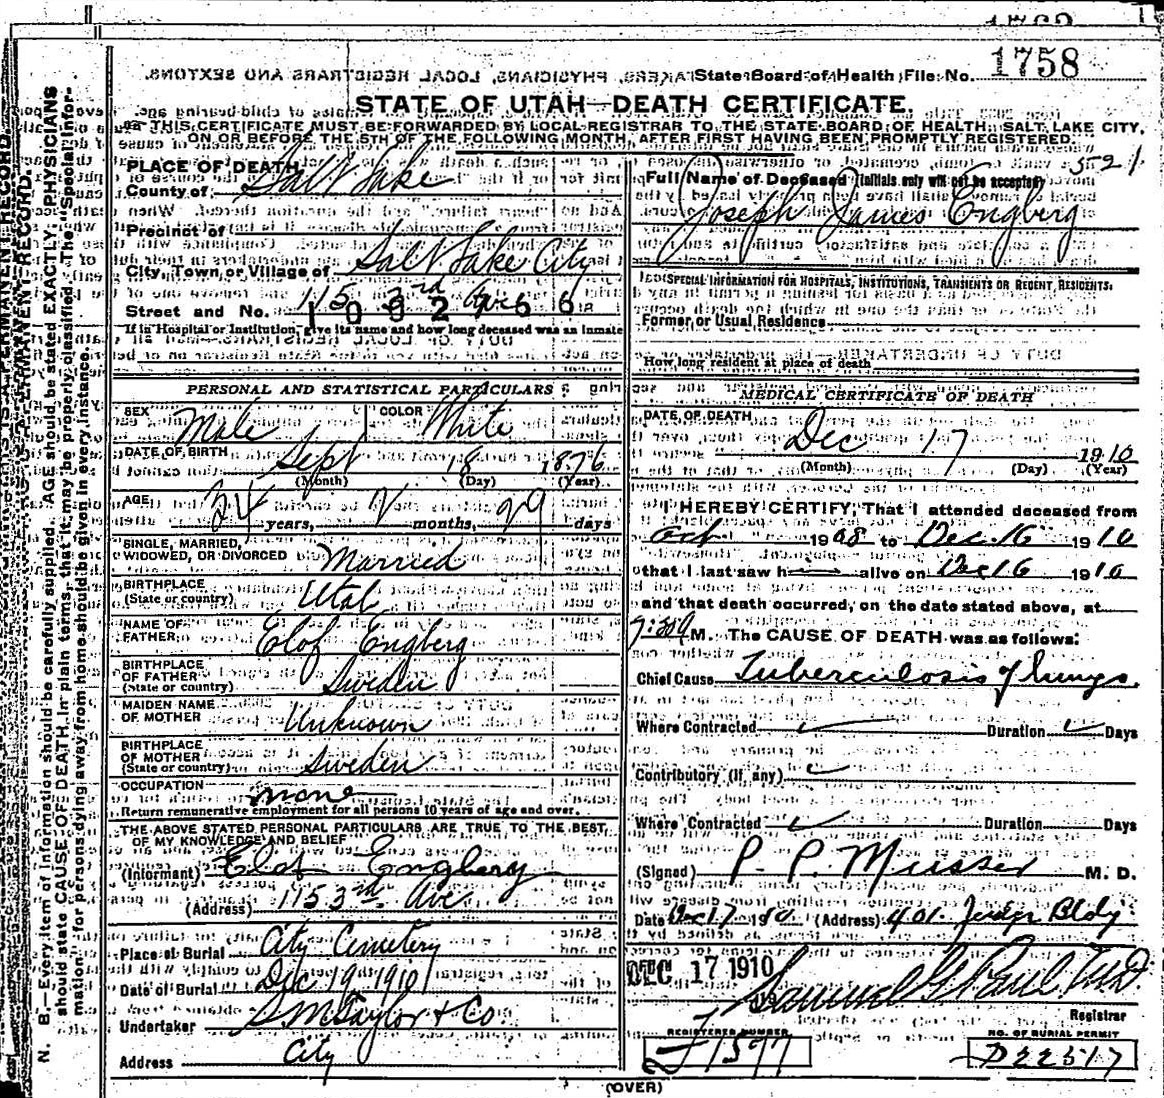 State Board of Health File No. 1758
STATE OF UTAH—DEATH CERTIFICATE.
THIS CERTIFICATE MUST BE FORWARDED BY LOCAL REGISTRAR TO THE STATE BOARD OF HEALTH, SALT LAKE CITY,
ON OR BEFORE THE 5TH OF THE FOLLOWING MONTH, AFTER FIRST HAVING BEEN PROMPTLY REGISTERED.
N. B.—Every item of information should be carefully supplied. AGE should be stated EXACTLY. PHYSICIANS
should state CAUSE OF DEATH in plain terms, that it may be properly classified. The "Special Infor-
mation" for persons dying away from home should be given in every instance.
PLACE OF DEATH
County of Salt Lake
Precinct of
City, Town or Village of Salt Lake City
Street and No. 115 3rd Ave
1093266
If in Hospital or Institution, give its name and how long deceased was an inmate
PERSONAL AND STATISTICAL PARTICULARS
SEX Male COLOR White
DATE OF BIRTH Sept 18 1876
(Month) (Day) (Year)
AGE 34 years, 2 months, 29 days
SINGLE, MARRIED,
WIDOWED, OR DIVORCED Married
BIRTHPLACE
(State or country) Utah
NAME OF
FATHER Elof Engberg
BIRTHPLACE
OF FATHER
(State or country) Sweden
MAIDEN NAME
OF MOTHER Unknown
BIRTHPLACE
OF MOTHER
(State or country) Sweden
OCCUPATION none
Return remunerative employment for all persons 10 years of age and over.
THE ABOVE STATED PERSONAL PARTICULARS ARE TRUE TO THE BEST
OF MY KNOWLEDGE AND BELIEF
(Informant) Elof Engberg
(Address) 115 3rd Ave
Place of Burial City Cemetery
Date of Burial Dec 19 1910
Undertaker S M Taylor & Co.
Address City
521
Full Name of Deceased (Initials only will not be accepted)
Joseph James Engberg
SPECIAL INFORMATION FOR HOSPITALS, INSTITUTIONS, TRANSIENTS OR RECENT RESIDENTS:
Former or Usual Residence
How long resident at place of death
MEDICAL CERTIFICATE OF DEATH
DATE OF DEATH Dec 17 1910
(Month) (Day) (Year)
I HEREBY CERTIFY, That I attended deceased from
Oct 1908 to Dec. 16 1910
that I last saw h alive on Dec 16 1910
and that death occurred, on the date stated above, at
M. The CAUSE OF DEATH was as follows:
Chief Cause Tuberculosis of lungs.
Where Contracted Duration Days
Contributory (if any)
Where Contracted Duration Days
(Signed) P. P. Musser M. D.
Date Dec 17 1910 (Address) 401 Judge Bldg
DEC 17 1910 Samuel G Paul M.D.
Registrar
REGISTERED NUMBER
1577
NO. OF BURIAL PERMIT
D 22517
(OVER)